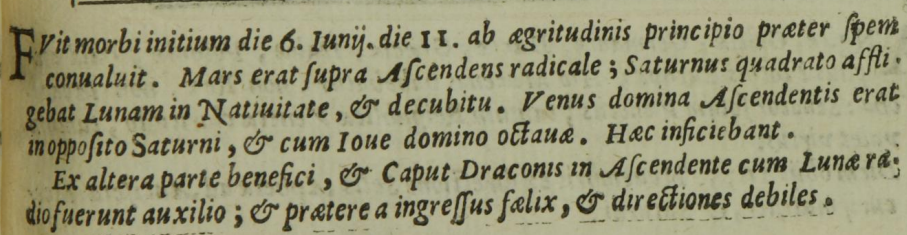 FVit morbi initium die 6. Iunij. die 11. ab ægritudinis principio præter ſpem
conualuit. Mars erat ſupra Aſcendens radicale; Saturnus quadrato affli-
gebat Lunam in Natiuitate, & decubitu. Venus domina Aſcendentis erat
in oppoſito Saturni, & cum Ioue domino octauæ. Hæc inficiebant.
Ex altera parte benefici, & Caput Draconis in Aſcendente cum Lunæ ra-
dio fuerunt auxilio; & prætere a ingreſſus fælix, & directiones debiles.